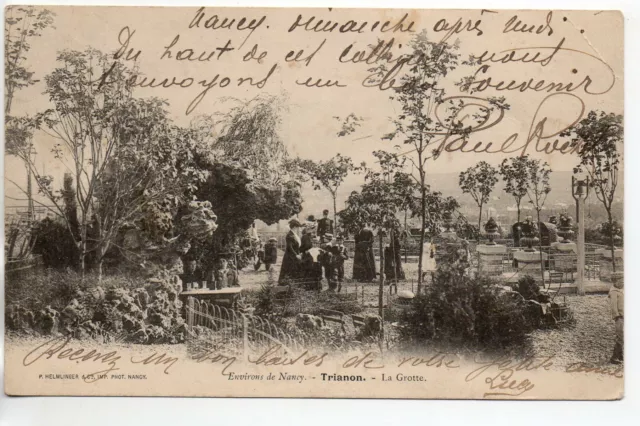 Nancy. Dimanche après midi.
Du haut de cette colline nous
envoyons un bon souvenir
Paul
Recevez un bon de votre petite amie
P. HELMLINGER & CE, IMP. PHOT. NANCY.
Environs de Nancy. - Trianon. - La Grotte.